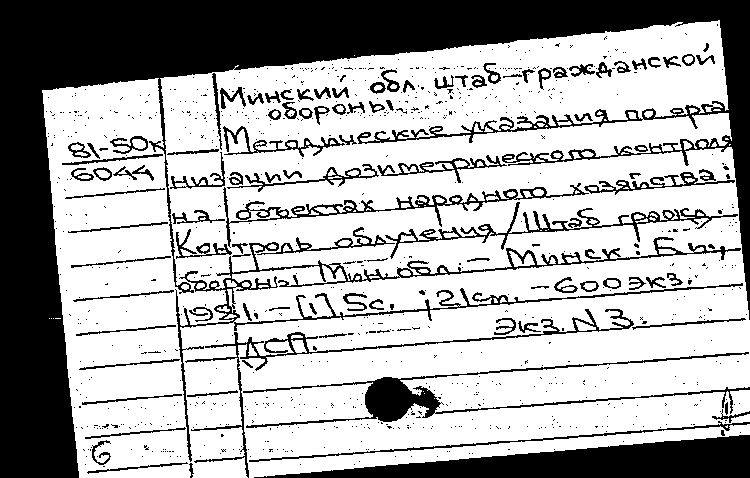 Минский обл. штаб гражданской
обороны.
81-50к
6044
Методические указания по орга
низации дозиметрического контроля
на объектах народного хозяйства:
Контроль облучения / Штаб гражд.
обороны Мин. обл. – Минск: Б.и.,
1981. – [1], 5с. ; 21см. – 600экз.
ДСП. Экз. N 3.
6